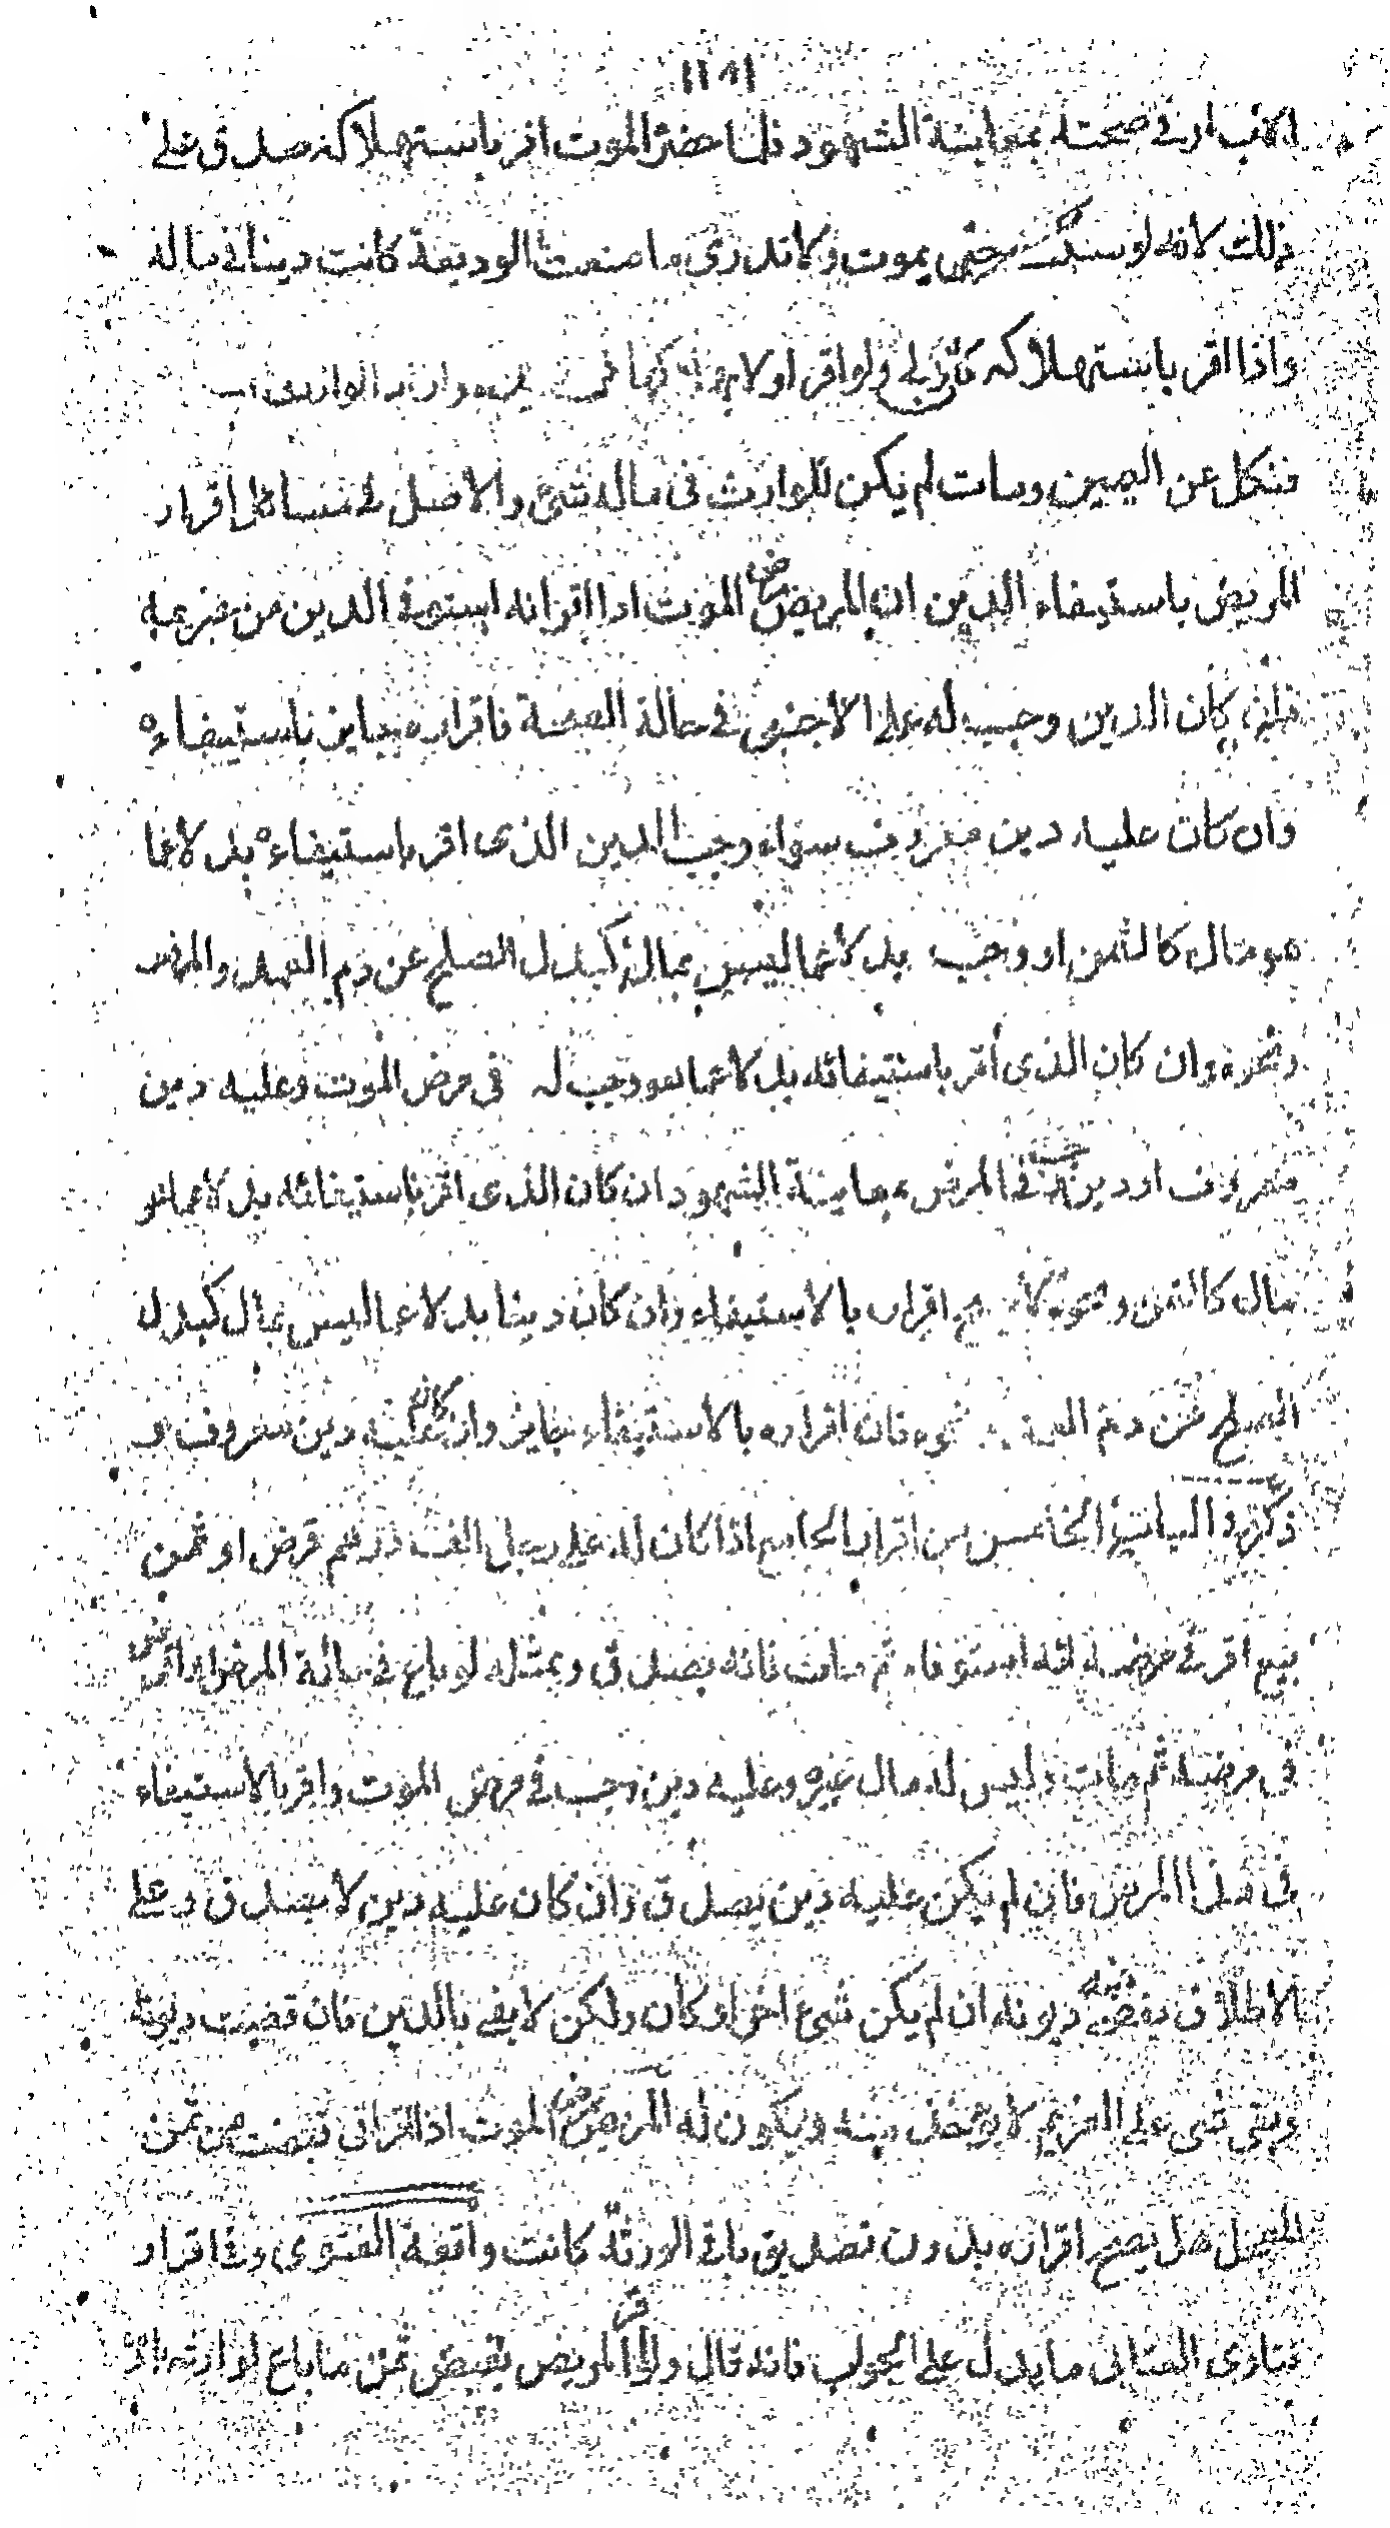 في صحته بمعاينة الشهود فلما حضر الموت اقر باستهلاكه صدق على
ذلك لانه لو سكت حتى يموت ولا تدرى ما صنعت الوديعة كانت دينا في ماله
واذا اقر باستهلاكه ولو اقر اولا
فنكل عن اليمين ومات لم يكن للوارث فى ماله شئ والاصل في مسائل اقرار
المريض باستيفاء الدين ان المريض مرض الموت اذا اقر انه استوفى الدين من غريمه
فان كان الدين وجب له على الاجنبى في حالة الصحة فاقراره جايز باستيفاءه
وان كان عليه دين معروف سواء وجب الدين الذى اقر باستيفاءه بدلا عما
هو مال كالثمن او وجب بدلا عما ليس بمال كبدل الصلح عن دم العمد والمهر
ونحوه وان كان الذى اقر باستيفائه بدلا عما هو وجب له فى مرض الموت وعليه دين
معروف او دين وجب في المرض بمعاينة الشهود ان كان الذى اقر باستيفائه بدلا عما هو
مال كالثمن ونحوه لا يصح اقراره بالاستيفاء وان كان دينا بدلا عما ليس بمال كبدل
الصلح عن دم العمد ونحوه فان اقراره بالاستيفاء جايز وان كان عليه دين معروف
ذكره الباب الخامس من اقرار الجامع اذا كان له على رجل الف درهم قرض او ثمن
بيع اقر في مرضه انه استوفاه ثم مات فانه يصدق وبمثله لو باع في حالة المرض
فى مرضه ثم مات وليس له مال غيره وعليه دين وجب في مرض الموت واقر بالاستيفاء
في هذا المرض فان لم يكن عليه دين يصدق وان كان عليه دين لا يصدق على
الاطلاق ديونه ان لم يكن شئ اخر او كان ولكن لا يفي بالدين فان قضيت ديونه
وبقى شئ على الغريم لا يؤخذ منه ويكون له المريض مرض الموت اذا اقر انى قبضت من ثمن
هل يصح اقراره بدون تصديق باقي الورثة كانت واقعة الفتوى وفي اقرار
فتاوى العتابى ما يدل على الجواب فانه قال ولو اقر المريض بقبض ثمن ما باع لوارثه